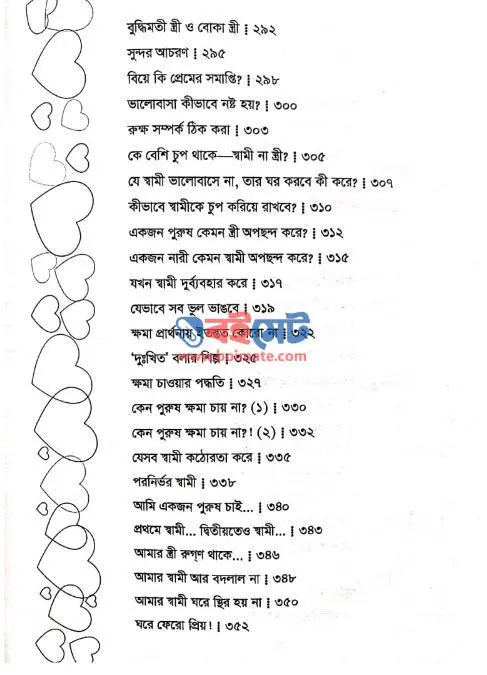 বুদ্ধিমতী স্ত্রী ও বোকা স্ত্রী ┇ ২৯২
সুন্দর আচরণ ┇ ২৯৫
বিয়ে কি প্রেমের সমাপ্তি? ┇ ২৯৮
ভালোবাসা কীভাবে নষ্ট হয়? ┇ ৩০০
রুক্ষ সম্পর্ক ঠিক করা ┇ ৩০৩
কে বেশি চুপ থাকে—স্বামী না স্ত্রী? ┇ ৩০৫
যে স্বামী ভালোবাসে না, তার ঘর করবে কী করে? ┇ ৩০৭
কীভাবে স্বামীকে চুপ করিয়ে রাখবে? ┇ ৩১০
একজন পুরুষ কেমন স্ত্রী অপছন্দ করে? ┇ ৩১২
একজন নারী কেমন স্বামী অপছন্দ করে? ┇ ৩১৫
যখন স্বামী দুর্ব্যবহার করে ┇ ৩১৭
যেভাবে সব ভুল ভাঙবে ┇ ৩১৯
বইমেট
ক্ষমা প্রার্থনায় ইতস্তত কোরো না ┇ ৩২২
'দুঃখিত' বলার শিল্প ┇ ৩২৫
www.boimate.com
ক্ষমা চাওয়ার পদ্ধতি ┇ ৩২৭
কেন পুরুষ ক্ষমা চায় না? (১) ┇ ৩৩০
কেন পুরুষ ক্ষমা চায় না?! (২) ┇ ৩৩২
যেসব স্বামী কঠোরতা করে ┇ ৩৩৫
পরনির্ভর স্বামী ┇ ৩৩৮
আমি একজন পুরুষ চাই... ┇ ৩৪০
প্রথমে স্বামী... দ্বিতীয়তেও স্বামী... ┇ ৩৪৩
আমার স্ত্রী রুগ্‌ণ থাকে... ┇ ৩৪৬
আমার স্বামী আর বদলাল না ┇ ৩৪৮
আমার স্বামী ঘরে স্থির হয় না ┇ ৩৫০
ঘরে ফেরো প্রিয়! ┇ ৩৫২